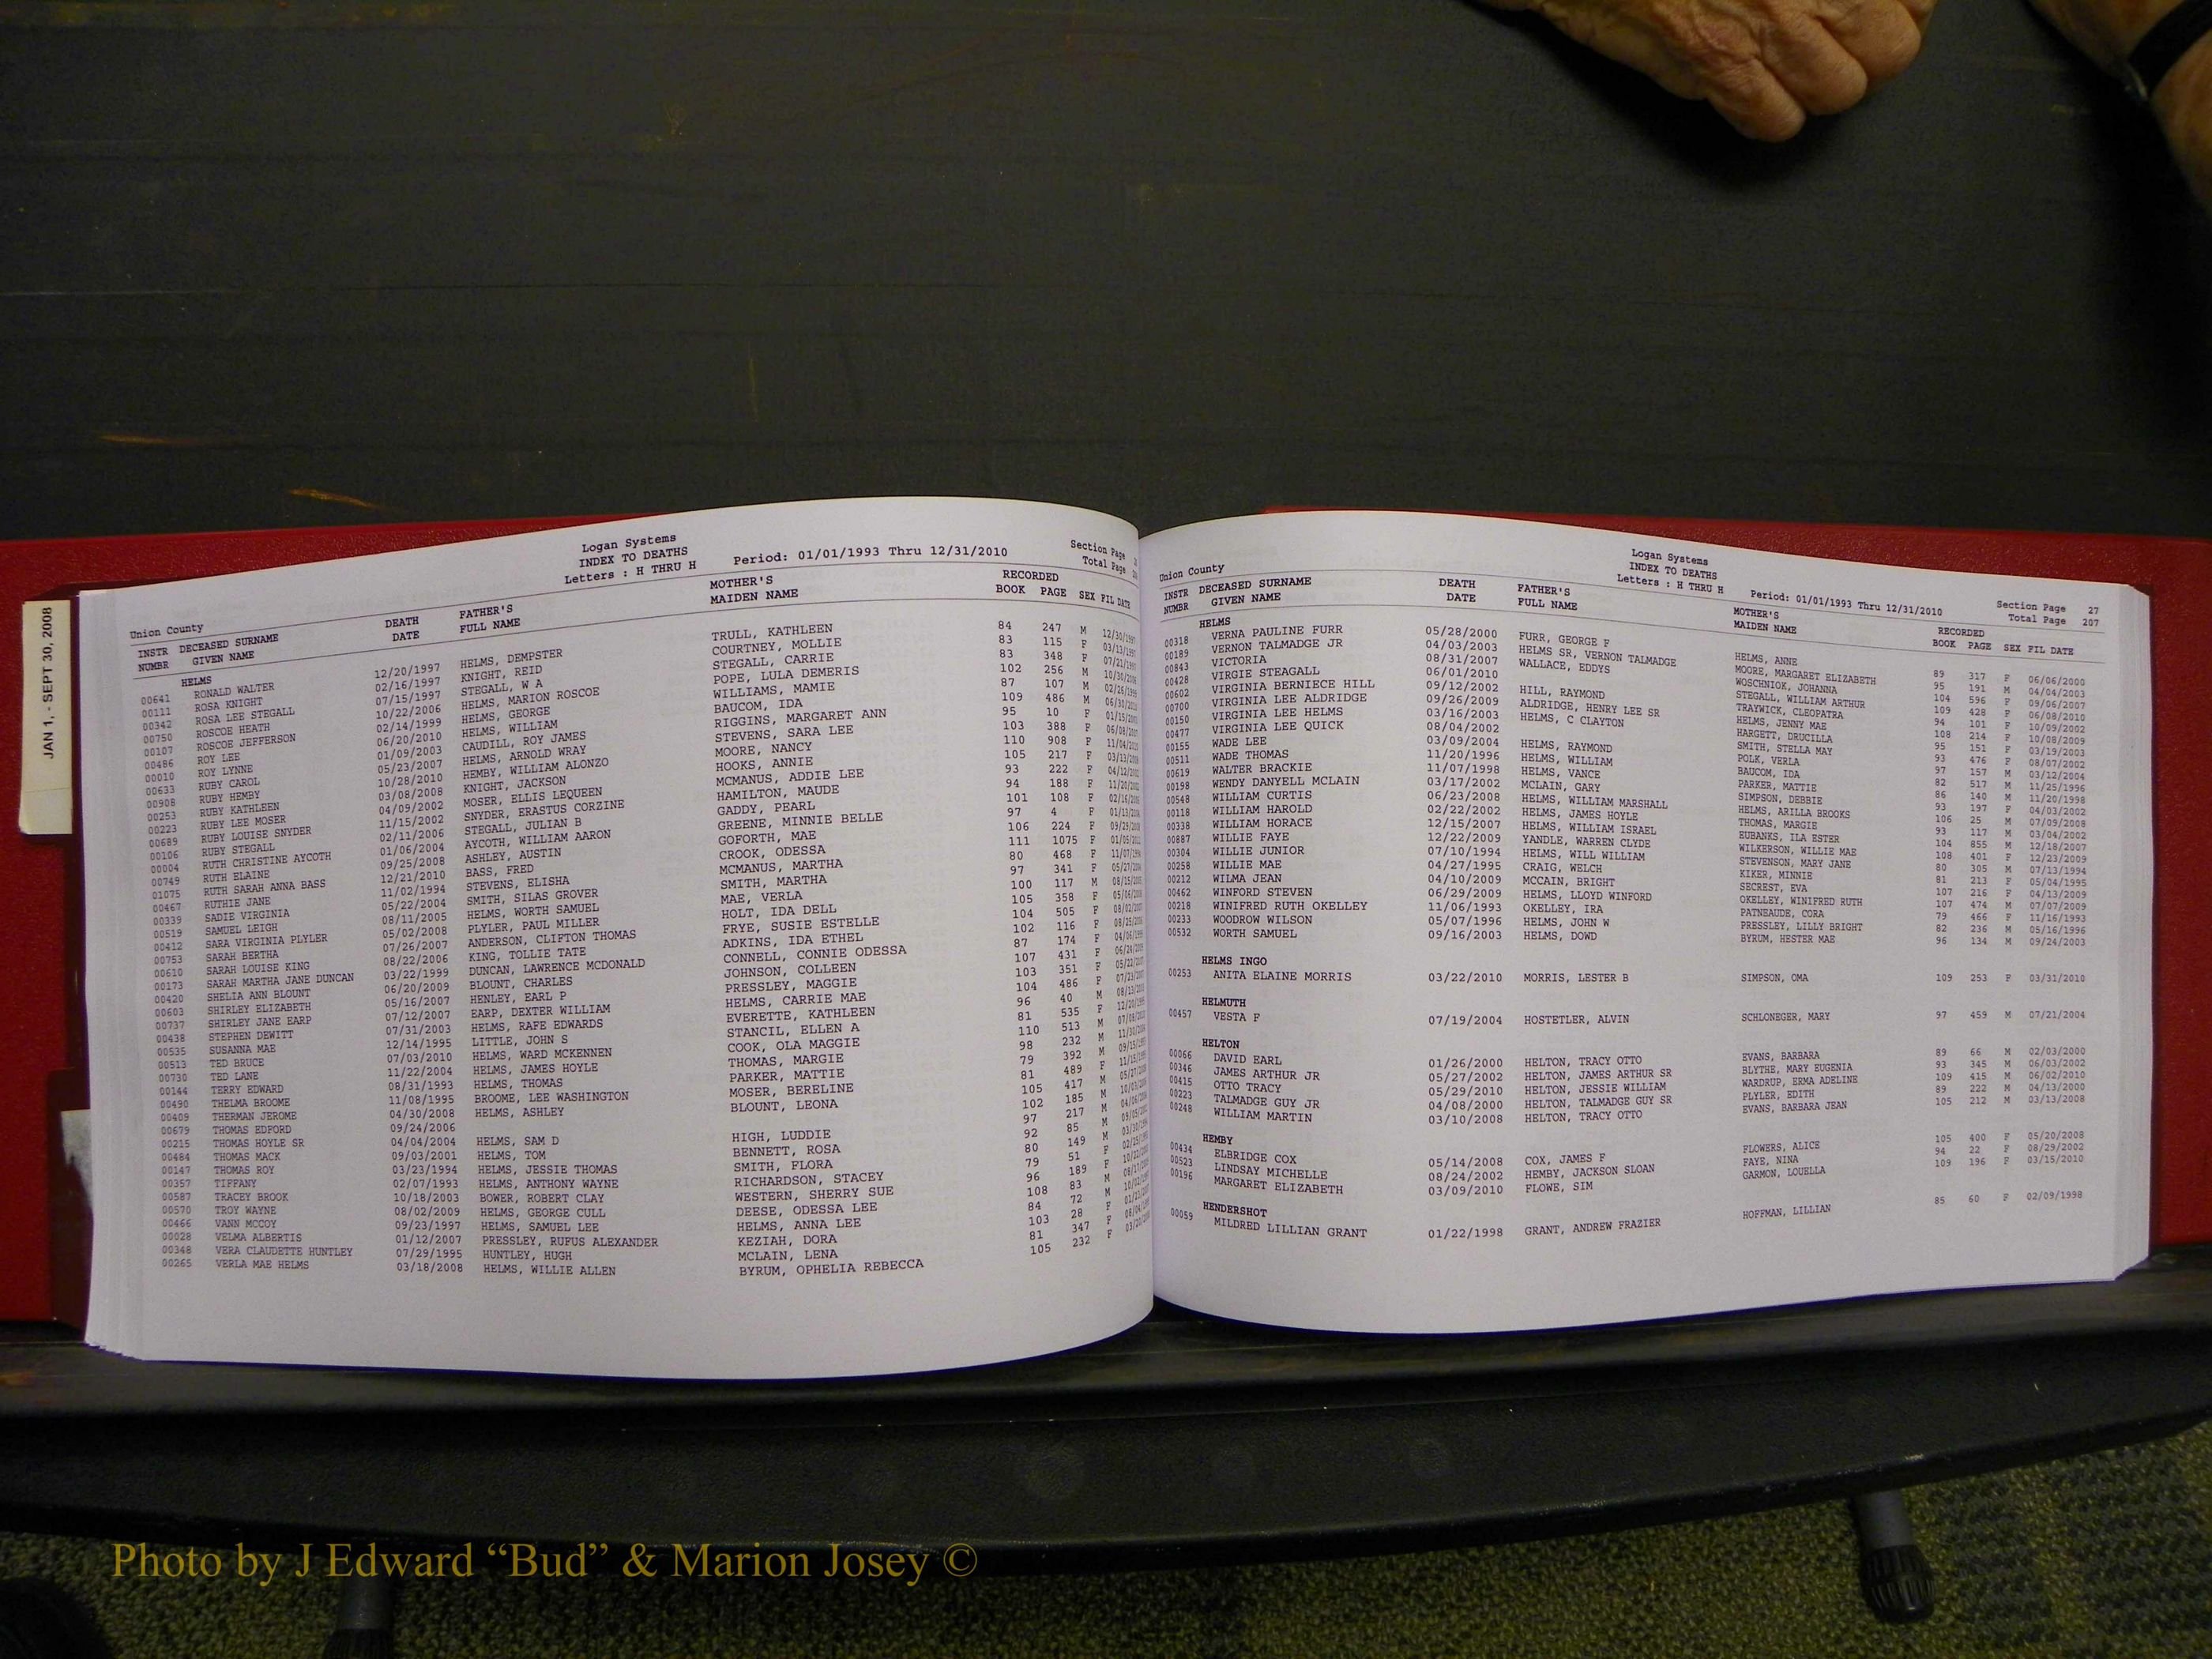 JAN 1, - SEPT 30, 2008
Logan Systems
INDEX TO DEATHS
Letters : H THRU H Period: 01/01/1993 Thru 12/31/2010 Section Page
Union County Total Page
INSTR DECEASED SURNAME DEATH FATHER'S MOTHER'S RECORDED
NUMBR GIVEN NAME DATE FULL NAME MAIDEN NAME BOOK PAGE SEX FIL DATE
HELMS
00641 RONALD WALTER 12/20/1997 HELMS, DEMPSTER TRULL, KATHLEEN 84 247 M
00111 ROSA KNIGHT 02/16/1997 KNIGHT, REID COURTNEY, MOLLIE 83 115 F
00342 ROSA LEE STEGALL 07/15/1997 STEGALL, W A STEGALL, CARRIE 83 348 F
00750 ROSCOE HEATH 10/22/2006 HELMS, MARION ROSCOE POPE, LULA DEMERIS 102 256 M
00107 ROSCOE JEFFERSON 02/14/1999 HELMS, GEORGE WILLIAMS, MAMIE 87 107 M
00486 ROY LEE 06/20/2010 HELMS, WILLIAM BAUCOM, IDA 109 486 M
00010 ROY LYNNE 01/09/2003 CAUDILL, ROY JAMES RIGGINS, MARGARET ANN 95 10 F
00633 RUBY CAROL 05/23/2007 HELMS, ARNOLD WRAY STEVENS, SARA LEE 103 388 F
00908 RUBY HEMBY 10/28/2010 HEMBY, WILLIAM ALONZO MOORE, NANCY 110 908 F
00253 RUBY KATHLEEN 03/08/2008 KNIGHT, JACKSON HOOKS, ANNIE 105 217 F
00223 RUBY LEE MOSER 04/09/2002 MOSER, ELLIS LEQUEEN MCMANUS, ADDIE LEE 93 222 F
00689 RUBY LOUISE SNYDER 11/15/2002 SNYDER, ERASTUS CORZINE HAMILTON, MAUDE 94 188 F
00106 RUBY STEGALL 02/11/2006 STEGALL, JULIAN B GADDY, PEARL 101 108 F
00004 RUTH CHRISTINE AYCOTH 01/06/2004 AYCOTH, WILLIAM AARON GREENE, MINNIE BELLE 97 4 F
00749 RUTH ELAINE 09/25/2008 ASHLEY, AUSTIN GOFORTH, MAE 106 224 F
01075 RUTH SARAH ANNA BASS 12/21/2010 BASS, FRED CROOK, ODESSA 111 1075 F
00467 RUTHIE JANE 11/02/1994 STEVENS, ELISHA MCMANUS, MARTHA 80 468 F
00339 SADIE VIRGINIA 05/22/2004 SMITH, SILAS GROVER SMITH, MARTHA 97 341 F
00519 SAMUEL LEIGH 08/11/2005 HELMS, WORTH SAMUEL MAE, VERLA 100 117 M
00412 SARA VIRGINIA PLYLER 05/02/2008 PLYLER, PAUL MILLER HOLT, IDA DELL 105 358 F
00753 SARAH BERTHA 07/26/2007 ANDERSON, CLIFTON THOMAS FRYE, SUSIE ESTELLE 104 505 F
00610 SARAH LOUISE KING 08/22/2006 KING, TOLLIE TATE ADKINS, IDA ETHEL 102 116 F
00173 SARAH MARTHA JANE DUNCAN 03/22/1999 DUNCAN, LAWRENCE MCDONALD CONNELL, CONNIE ODESSA 87 174 F
00420 SHELIA ANN BLOUNT 06/20/2009 BLOUNT, CHARLES JOHNSON, COLLEEN 107 431 F
00603 SHIRLEY ELIZABETH 05/16/2007 HENLEY, EARL P PRESSLEY, MAGGIE 103 351 F
00737 SHIRLEY JANE EARP 07/12/2007 EARP, DEXTER WILLIAM HELMS, CARRIE MAE 104 486 F
00438 STEPHEN DEWITT 07/31/2003 HELMS, RAFE EDWARDS EVERETTE, KATHLEEN 96 40 M
00535 SUSANNA MAE 12/14/1995 LITTLE, JOHN S STANCIL, ELLEN A 81 535 F
00513 TED BRUCE 07/03/2010 HELMS, WARD MCKENNEN COOK, OLA MAGGIE 110 513 M
00730 TED LANE 11/22/2004 HELMS, JAMES HOYLE THOMAS, MARGIE 98 232 M
00144 TERRY EDWARD 08/31/1993 HELMS, THOMAS PARKER, MATTIE 79 392 M
00490 THELMA BROOME 11/08/1995 BROOME, LEE WASHINGTON MOSER, BERELINE 81 489 F
00409 THERMAN JEROME 04/30/2008 HELMS, ASHLEY BLOUNT, LEONA 105 417 M
00679 THOMAS EDFORD 09/24/2006 102 185 M
00215 THOMAS HOYLE SR 04/04/2004 HELMS, SAM D HIGH, LUDDIE 97 217 M
00484 THOMAS MACK 09/03/2001 HELMS, TOM BENNETT, ROSA 92 85 M
00147 THOMAS ROY 03/23/1994 HELMS, JESSIE THOMAS SMITH, FLORA 80 149 M
00357 TIFFANY 02/07/1993 HELMS, ANTHONY WAYNE RICHARDSON, STACEY 79 51 F
00587 TRACEY BROOK 10/18/2003 BOWER, ROBERT CLAY WESTERN, SHERRY SUE 96 189 F
00570 TROY WAYNE 08/02/2009 HELMS, GEORGE CULL DEESE, ODESSA LEE 108 83 M
00466 VANN MCCOY 09/23/1997 HELMS, SAMUEL LEE HELMS, ANNA LEE 84 72 M
00028 VELMA ALBERTIS 01/12/2007 PRESSLEY, RUFUS ALEXANDER KEZIAH, DORA 103 28 F
00348 VERA CLAUDETTE HUNTLEY 07/29/1995 HUNTLEY, HUGH MCLAIN, LENA 81 347 F
00265 VERLA MAE HELMS 03/18/2008 HELMS, WILLIE ALLEN BYRUM, OPHELIA REBECCA 105 232 F
Logan Systems
INDEX TO DEATHS
Union County Letters : H THRU H Period: 01/01/1993 Thru 12/31/2010 Section Page 27
Total Page 207
INSTR DECEASED SURNAME DEATH FATHER'S MOTHER'S RECORDED
NUMBR GIVEN NAME DATE FULL NAME MAIDEN NAME BOOK PAGE SEX FIL DATE
HELMS
00318 VERNA PAULINE FURR 05/28/2000 FURR, GEORGE F HELMS, ANNE 89 317 F 06/06/2000
00189 VERNON TALMADGE JR 04/03/2003 HELMS SR, VERNON TALMADGE MOORE, MARGARET ELIZABETH 95 191 M 04/04/2003
00843 VICTORIA 08/31/2007 WALLACE, EDDYS WOSCHNIOK, JOHANNA 104 596 F 09/06/2007
00428 VIRGIE STEAGALL 06/01/2010 STEGALL, WILLIAM ARTHUR 109 428 F 06/08/2010
00602 VIRGINIA BERNIECE HILL 09/12/2002 HILL, RAYMOND TRAYWICK, CLEOPATRA 94 101 F 10/09/2002
00700 VIRGINIA LEE ALDRIDGE 09/26/2009 ALDRIDGE, HENRY LEE SR HELMS, JENNY MAE 108 214 F 10/08/2009
00150 VIRGINIA LEE HELMS 03/16/2003 HELMS, C CLAYTON HARGETT, DRUCILLA 95 151 F 03/19/2003
00477 VIRGINIA LEE QUICK 08/04/2002 SMITH, STELLA MAY 93 476 F 08/07/2002
00155 WADE LEE 03/09/2004 HELMS, RAYMOND POLK, VERLA 97 157 M 03/12/2004
00511 WADE THOMAS 11/20/1996 HELMS, WILLIAM BAUCOM, IDA 82 517 M 11/25/1996
00619 WALTER BRACKIE 11/07/1998 HELMS, VANCE PARKER, MATTIE 86 140 M 11/20/1998
00198 WENDY DANYELL MCLAIN 03/17/2002 MCLAIN, GARY SIMPSON, DEBBIE 93 197 F 04/03/2002
00548 WILLIAM CURTIS 06/23/2008 HELMS, WILLIAM MARSHALL HELMS, ARILLA BROOKS 106 25 M 07/09/2008
00118 WILLIAM HAROLD 02/22/2002 HELMS, JAMES HOYLE THOMAS, MARGIE 93 117 M 03/04/2002
00338 WILLIAM HORACE 12/15/2007 HELMS, WILLIAM ISRAEL EUBANKS, ILA ESTER 104 855 M 12/18/2007
00887 WILLIE FAYE 12/22/2009 YANDLE, WARREN CLYDE WILKERSON, WILLIE MAE 108 401 F 12/23/2009
00304 WILLIE JUNIOR 07/10/1994 HELMS, WILL WILLIAM STEVENSON, MARY JANE 80 305 M 07/13/1994
00258 WILLIE MAE 04/27/1995 CRAIG, WELCH KIKER, MINNIE 81 213 F 05/04/1995
00212 WILMA JEAN 04/10/2009 MCCAIN, BRIGHT SECREST, EVA 107 216 F 04/13/2009
00462 WINFORD STEVEN 06/29/2009 HELMS, LLOYD WINFORD OKELLEY, WINIFRED RUTH 107 474 M 07/07/2009
00218 WINIFRED RUTH OKELLEY 11/06/1993 OKELLEY, IRA PATNEAUDE, CORA 79 466 F 11/16/1993
00233 WOODROW WILSON 05/07/1996 HELMS, JOHN W PRESSLEY, LILLY BRIGHT 82 236 M 05/16/1996
00532 WORTH SAMUEL 09/16/2003 HELMS, DOWD BYRUM, HESTER MAE 96 134 M 09/24/2003
HELMS INGO
00253 ANITA ELAINE MORRIS 03/22/2010 MORRIS, LESTER B SIMPSON, OMA 109 253 F 03/31/2010
HELMUTH
00457 VESTA F 07/19/2004 HOSTETLER, ALVIN SCHLONEGER, MARY 97 459 M 07/21/2004
HELTON
00066 DAVID EARL 01/26/2000 HELTON, TRACY OTTO EVANS, BARBARA 89 66 M 02/03/2000
00346 JAMES ARTHUR JR 05/27/2002 HELTON, JAMES ARTHUR SR BLYTHE, MARY EUGENIA 93 345 M 06/03/2002
00415 OTTO TRACY 05/29/2010 HELTON, JESSIE WILLIAM WARDRUP, ERMA ADELINE 109 415 M 06/02/2010
00223 TALMADGE GUY JR 04/08/2000 HELTON, TALMADGE GUY SR PLYLER, EDITH 89 222 M 04/13/2000
00248 WILLIAM MARTIN 03/10/2008 HELTON, TRACY OTTO EVANS, BARBARA JEAN 105 212 M 03/13/2008
HEMBY
00434 ELBRIDGE COX 05/14/2008 COX, JAMES F FLOWERS, ALICE 105 400 F 05/20/2008
00523 LINDSAY MICHELLE 08/24/2002 HEMBY, JACKSON SLOAN FAYE, NINA 94 22 F 08/29/2002
00196 MARGARET ELIZABETH 03/09/2010 FLOWE, SIM GARMON, LOUELLA 109 196 F 03/15/2010
HENDERSHOT
00059 MILDRED LILLIAN GRANT 01/22/1998 GRANT, ANDREW FRAZIER HOFFMAN, LILLIAN 85 60 F 02/09/1998
Photo by J Edward “Bud” & Marion Josey ©